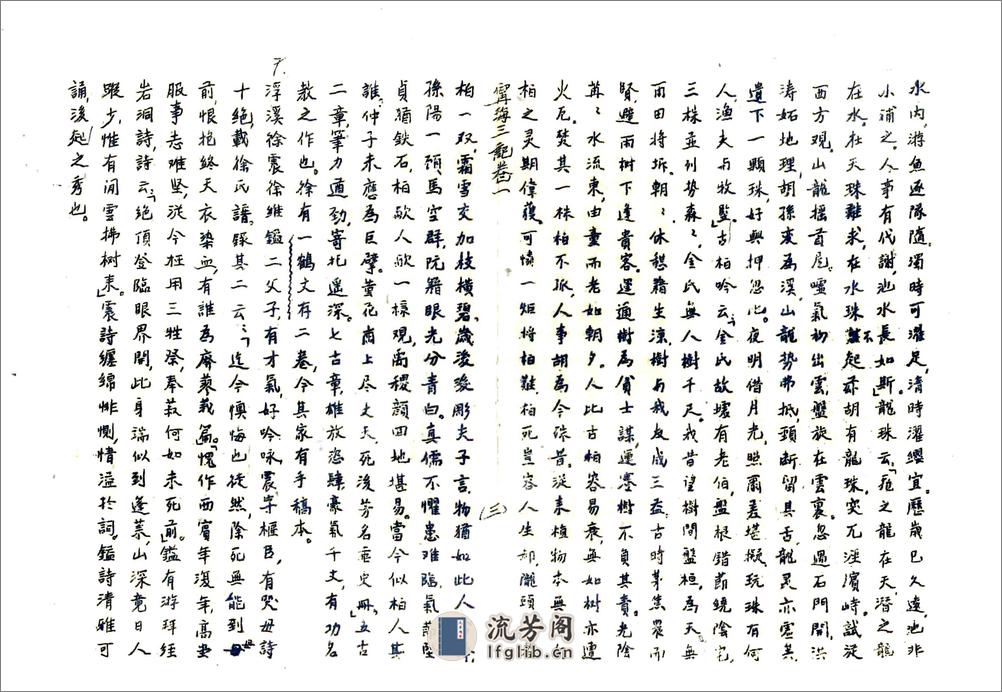 水内，游鱼逐隊隨。濁時可濯足，清時濯纓宜。歷歲已久遠，池非
小浦之。人事有代謝，池水長如斯。」龍珠云：「龙之龍在天，潛之龍
在水。在天珠難求，在水珠難起。胡有龍珠突兀涯濱峙。試從
西方观，山龍摇首尾。嘘氣初出雲，盤旋在雲裏。忽過石門關，洪
涛妬地理，胡孫束為溪，山龍勢弗抵，頭断留其舌，龍灵亦雲其
遺下一顆珠，好與押忽比。夜明借月光，照爾差堪擬。玩珠有何
人，漁夫与牧豎。」古柏吟云：「金氏故墟有老伯，盤根错莭繞陰宅，
三株並列势森々，金氏無人樹千尺。我昔望樹間盤桓。為天無
雨田将坼。朝々休憩籍生涼，樹与我友成三益。古時茅焦農而
賢，避雨樹下逢貴客。運通樹為貧士謀，運塞樹不負其責。光陰
苒々水流東，由童而老如朝夕。人比古柏容易衰，無如树亦遭
火厄。焚其一株柏不孤，人事胡為今殊昔。從来植物本無
柏之灵期偉獲。可憐一炬将柏難，柏死豈容人生却，隴頭
寧海三記卷一
（三）
柏一双，霜雪交加枝横碧。歲後凌彫夫子言，物猶如此人
孫陽一顧馬空群，阮籍眼光分青白。真儒不懼患难臨，氣莭坚
貞猶鉄石，柏欤人欤一樣观，禹稷顔回地堪易。當今似柏人其
誰，仲子未應為巨擘。黄花崗上尽丈夫，死後芳名垂史册。」五古
二章，筆力遒劲，寄托遥深。七古章，雄放恣肆，豪氣千丈，有功名
教之作也。徐有一鶴文存二卷，今其家有手稿本。
浮溪徐震徐维鎰二父子，有才氣，好吟咏，震字楓臣，有哭母詩
十绝，載徐氏譜。録其二云：「迄今懊悔也徒然，除死無能到母
前，恨抱终天衣染血，有誰為廢蓼莪篇。」「愧作西賓年復年，高堂
服事志难坚，從今枉用三牲祭，奉菽何如未死前。」鎰有游拜经
岩洞詩，詩云：「絶頂登臨眼界開，此身端似到蓬莱，山深竟日人
踪少，惟有闲雲拂树来。」震詩缠绵悱惻，情溢於詞。鎰詩清雅可
誦，後起之秀也。
流芳阁
lfglib.com